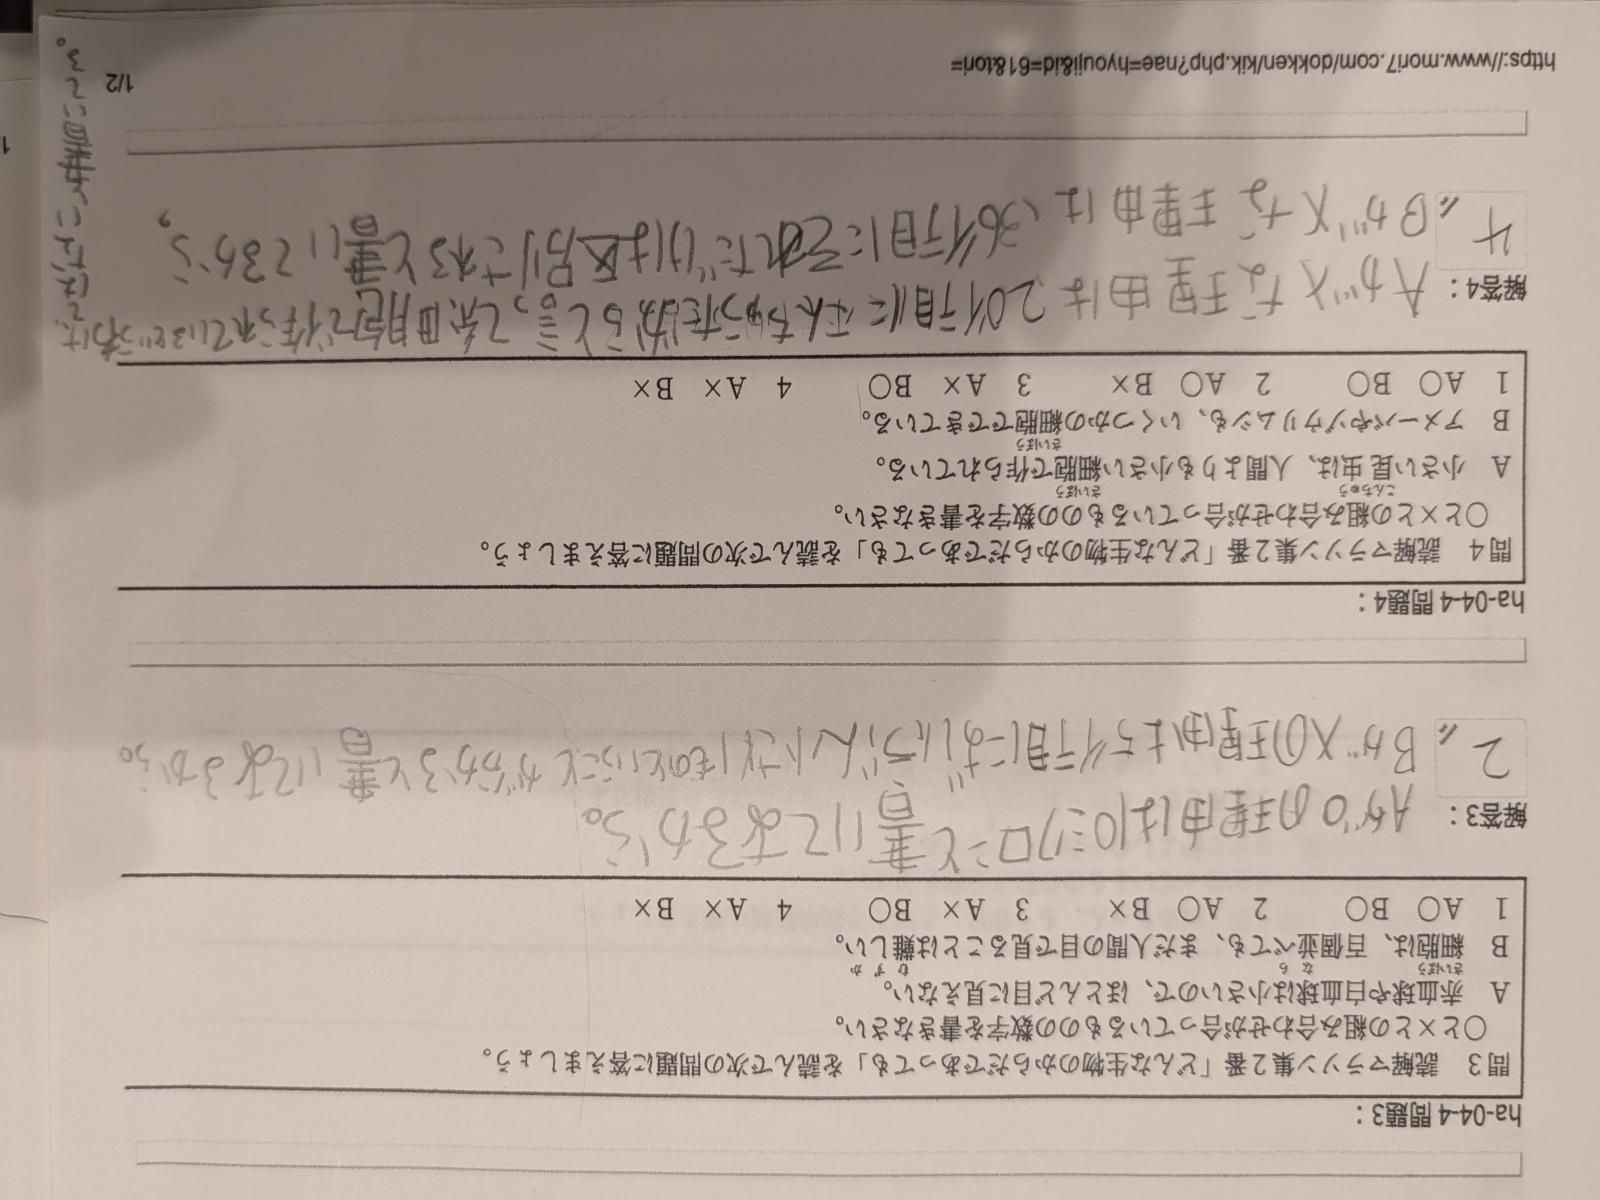 ha-04-4 問題3：
問3　読解マラソン集2番「どんな生物のからだであっても」を読んで次の問題に答えましょう。
○と×との組み合わせが合っているものの数字を書きなさい。
A　赤血球や白血球は小さいので、ほとんど目に見えない。
さいぼう　なら　むずか
B　細胞は、百個並べても、まだ人間の目で見ることは難しい。
1　A○　B○　2　A○　B×　3　A×　B○　4　A×　B×
解答3：
Aが○の理由は10ミクロンと書いてあるから。
2 Bが×の理由は5行目にずいぶん小さいものということがわかると書いてあるから。
ha-04-4 問題4：
問4　読解マラソン集2番「どんな生物のからだであっても」を読んで次の問題に答えましょう。
○と×との組み合わせが合っているものの数字を書きなさい。
こんちゅう　さいぼう
A　小さい昆虫は、人間よりも小さい細胞で作られている。
さいぼう
B　アメーバやゾウリムシも、いくつかの細胞でできている。
1　A○　B○　2　A○　B×　3　A×　B○　4　A×　B×
解答4：
Aが×な理由は20行目にこんちゅうだからと言って細胞で作られているわけではないと書いてる。
4 Bが×な理由は、36行目にそれだけは区別されると書いてるから。
https://www.mori7.com/dokken/kik.php?nae=hyouji&id=61&tori=
1/2